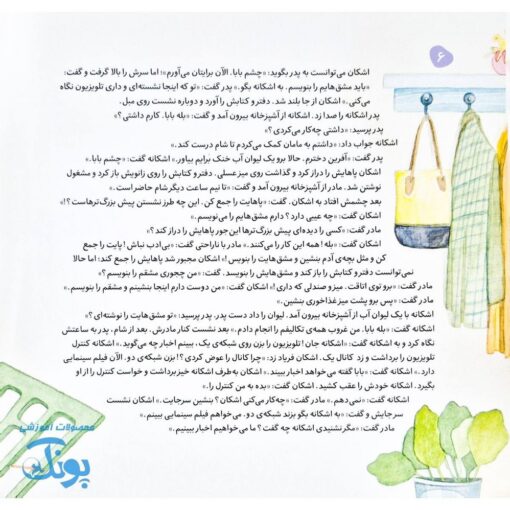 ۶
اشکان می‌توانست به پدر بگوید: «چشم بابا. الآن برایتان می‌آورم»؛ اما سرش را بالا گرفت و گفت:
«باید مشق‌هایم را بنویسم. به اشکانه بگو.» پدر گفت: «تو که اینجا نشسته‌ای و داری تلویزیون نگاه
می‌کنی.» اشکان از جا بلند شد. دفتر و کتابش را آورد و دوباره نشست روی مبل.
پدر اشکانه را صدا زد. اشکانه از آشپزخانه بیرون آمد و گفت: «بله بابا. کارم داشتی؟»
پدر پرسید: «داشتی چه‌کار می‌کردی؟»
اشکانه جواب داد: «داشتم به مامان کمک می‌کردم تا شام درست کند.»
پدر گفت: «آفرین دخترم. حالا برو یک لیوان آب خنک برایم بیاور.» اشکانه گفت: «چشم بابا.»
اشکان پاهایش را دراز کرد و گذاشت روی میز عسلی. دفتر و کتابش را روی زانویش باز کرد و مشغول
نوشتن شد. مادر از آشپزخانه بیرون آمد و گفت: «تا نیم ساعت دیگر شام حاضر است.»
بعد چشمش افتاد به اشکان. گفت: «پاهایت را جمع کن. این چه طرز نشستن پیش بزرگ‌ترهاست؟!»
اشکان گفت: «چه عیبی دارد؟ دارم مشق‌هایم را می‌نویسم.»
مادر گفت: «کسی را دیده‌ای پیش بزرگ‌ترها این‌جور پاهایش را دراز کند؟»
اشکان گفت: «بله! همه این کار را می‌کنند.» مادر با ناراحتی گفت: «بی‌ادب نباش! پایت را جمع
کن و مثل بچه‌ی آدم بنشین و مشق‌هایت را بنویس!» اشکان مجبور شد پاهایش را جمع کند؛ اما حالا
نمی‌توانست دفتر و کتابش را باز کند و مشق‌هایش را بنویسد. گفت: «من چجوری مشقم را بنویسم؟»
مادر گفت: «برو توی اتاقت. میز و صندلی که داری!» اشکان گفت: «من دوست دارم اینجا بنشینم و مشقم را بنویسم.»
مادر گفت: «پس برو پشت میز غذاخوری بنشین.»
اشکانه با یک لیوان آب از آشپزخانه بیرون آمد. لیوان را داد دست پدر. پدر پرسید: «تو مشق‌هایت را نوشته‌ای؟»
اشکانه گفت: «بله بابا. من غروب همه‌ی تکالیفم را انجام دادم.» بعد نشست کنار مادرش. بعد از شام، پدر به ساعتش
نگاه کرد و به اشکانه گفت: «اشکانه جان! تلویزیون را بزن روی شبکه‌ی یک، ببینم اخبار چه می‌گوید.» اشکانه کنترل
تلویزیون را برداشت و زد کانال یک. اشکان فریاد زد: «چرا کانال را عوض کردی؟! بزن شبکه‌ی دو. الآن فیلم سینمایی
دارد.» اشکانه گفت: «بابا گفته می‌خواهد اخبار ببیند.» اشکان به‌طرف اشکانه خیز برداشت و خواست کنترل را از او
بگیرد. اشکانه خودش را عقب کشید. اشکان گفت: «بده به من کنترل را.»
اشکانه گفت: «نمی‌دهم.» مادر گفت: «چه‌کار می‌کنی اشکان؟ بنشین سرجایت.» اشکان نشست
سرجایش و گفت: «به اشکانه بگو بزند شبکه‌ی دو. می‌خواهم فیلم سینمایی ببینم.»
مادر گفت: «مگر نشنیدی اشکانه چه گفت؟ ما می‌خواهیم اخبار ببینیم.»
محصولات آموزشی
پونک